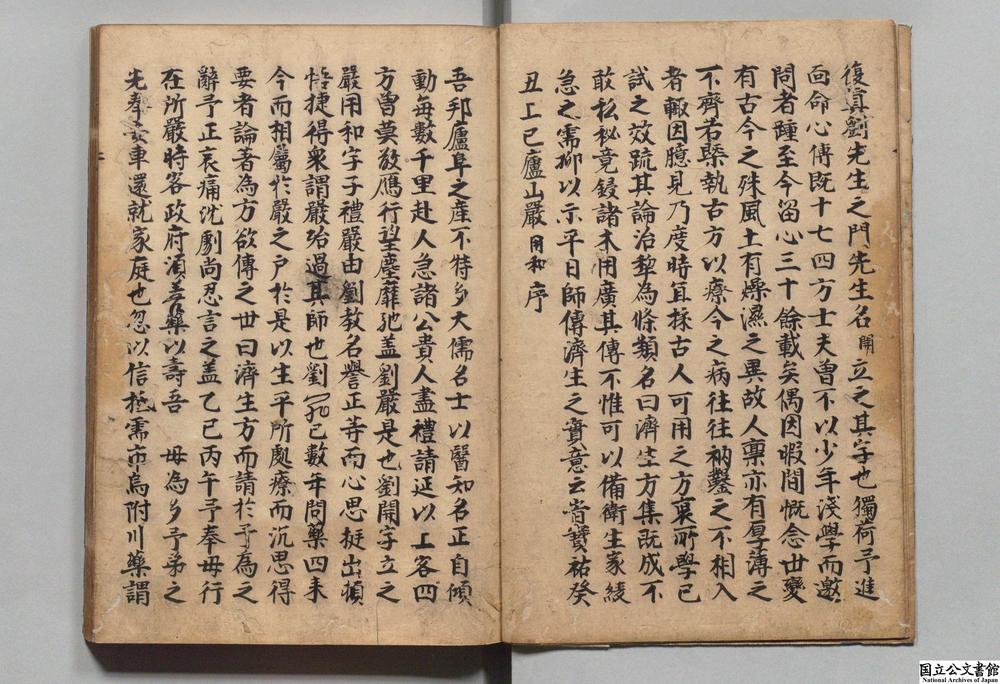 復真劉先生之門先生名開立之其字也獨荷予進
面命心傳既十七四方士夫曽不以少年淺學而邀
問者踵至今留心三十餘載矣偶因暇間慨念世變
有古今之殊風土有燥濕之異故人稟亦有厚薄之
不齊若槩執古方以療今之病往往枘鑿之不相入
者輙因臆見乃度時冝採古人可用之方裒所學已
試之效疏其論治犂為條類名曰濟生方集既成不
敢私秘竟鋟諸木用廣其傳不惟可以備衛生家緩
急之需抑以示平日師傳濟生之實意云旹寶祐癸
丑上巳廬山嚴用和序
吾邦廬阜之產不特多大儒名士以醫知名正自傾
動每數千里赴人急諸公貴人盡禮請延以上客四
方曽莫敢鴈行望塵靡弛盖劉嚴是也劉開字立之
嚴用和字子禮嚴由劉教名譽正等而心思挺出頑
悟捷得衆謂嚴殆過其師也劉死已數年問藥四来
今而相屬於嚴之户於是以生平所處療而沉思得
要者論著為方欲傳之世曰濟生方而請於予為之
辭予正哀痛沈劇尚忍言之盖乙巳丙午予奉母行
在所嚴時客政府湏善藥以壽吾 母為多予弟之
先奉安車還就家庭也忽以信抵需市烏附川藥謂
国立公文書館
National Archives of Japan